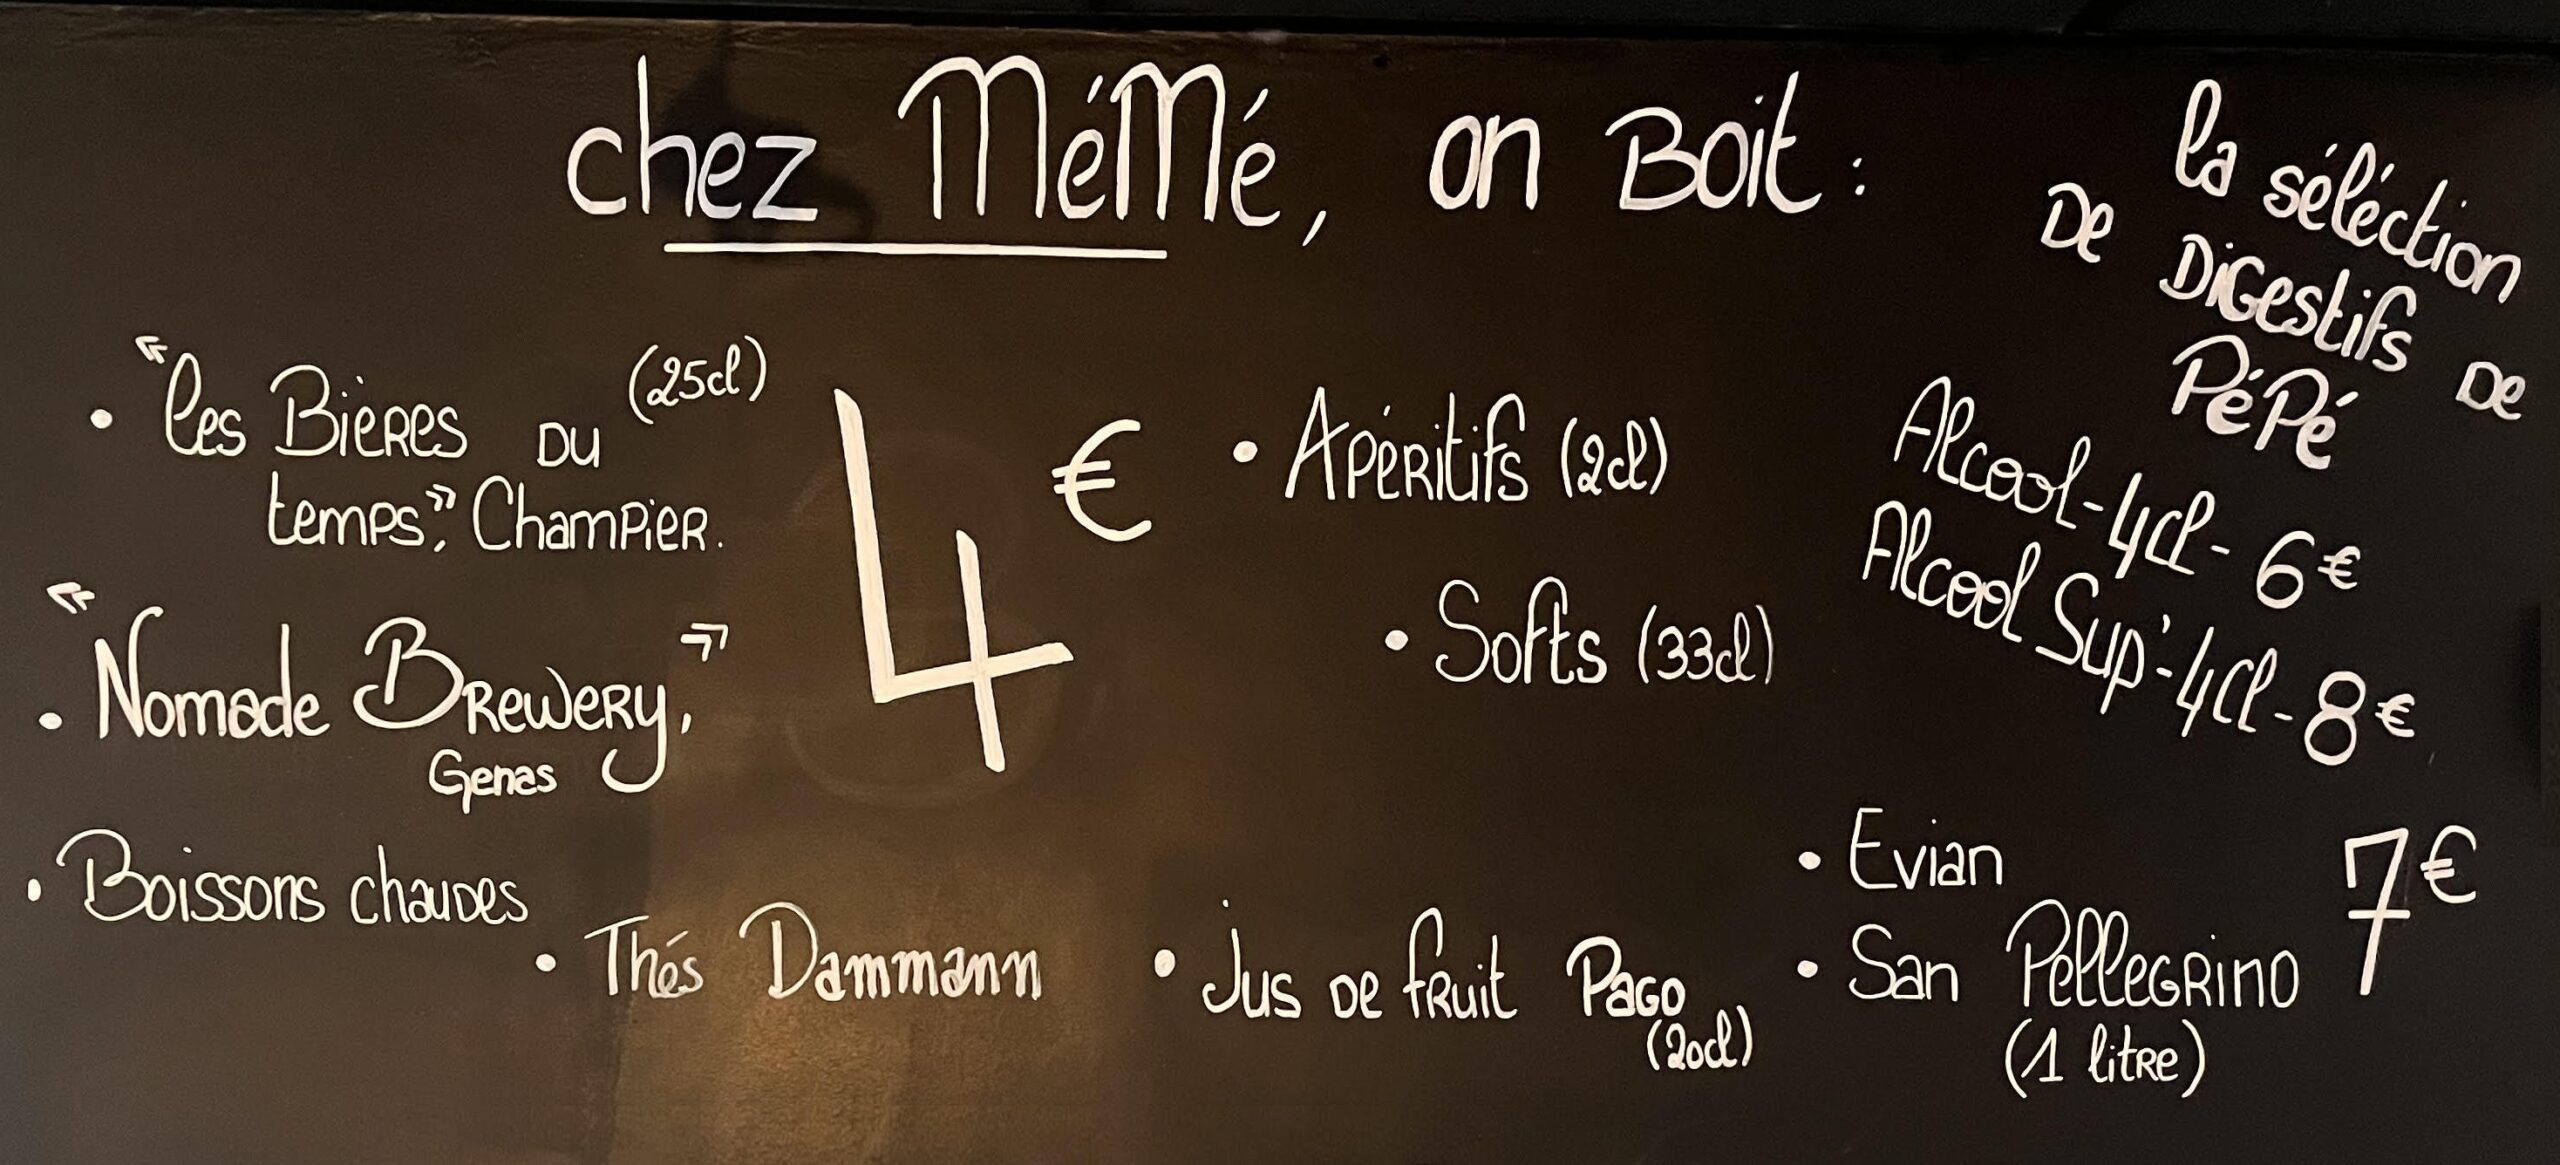 chez MéMé, on Boit :
« les Bières du (25cl)
temps », Champier.
« Nomade Brewery, »
Genas
• Boissons chaudes
• Thés Dammann
4 €
• Apéritifs (2cl)
• Softs (33cl)
• Jus de fruit Pago
(20cl)
la séléction
De Digestifs de
PéPé
Alcool - 4cl - 6€
Alcool Sup' - 4cl - 8€
• Evian
• San Pellegrino
(1 litre)
7€